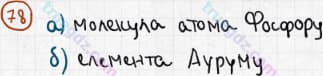 78 а) молекула атома Фосфору
б) елемента Ауруму